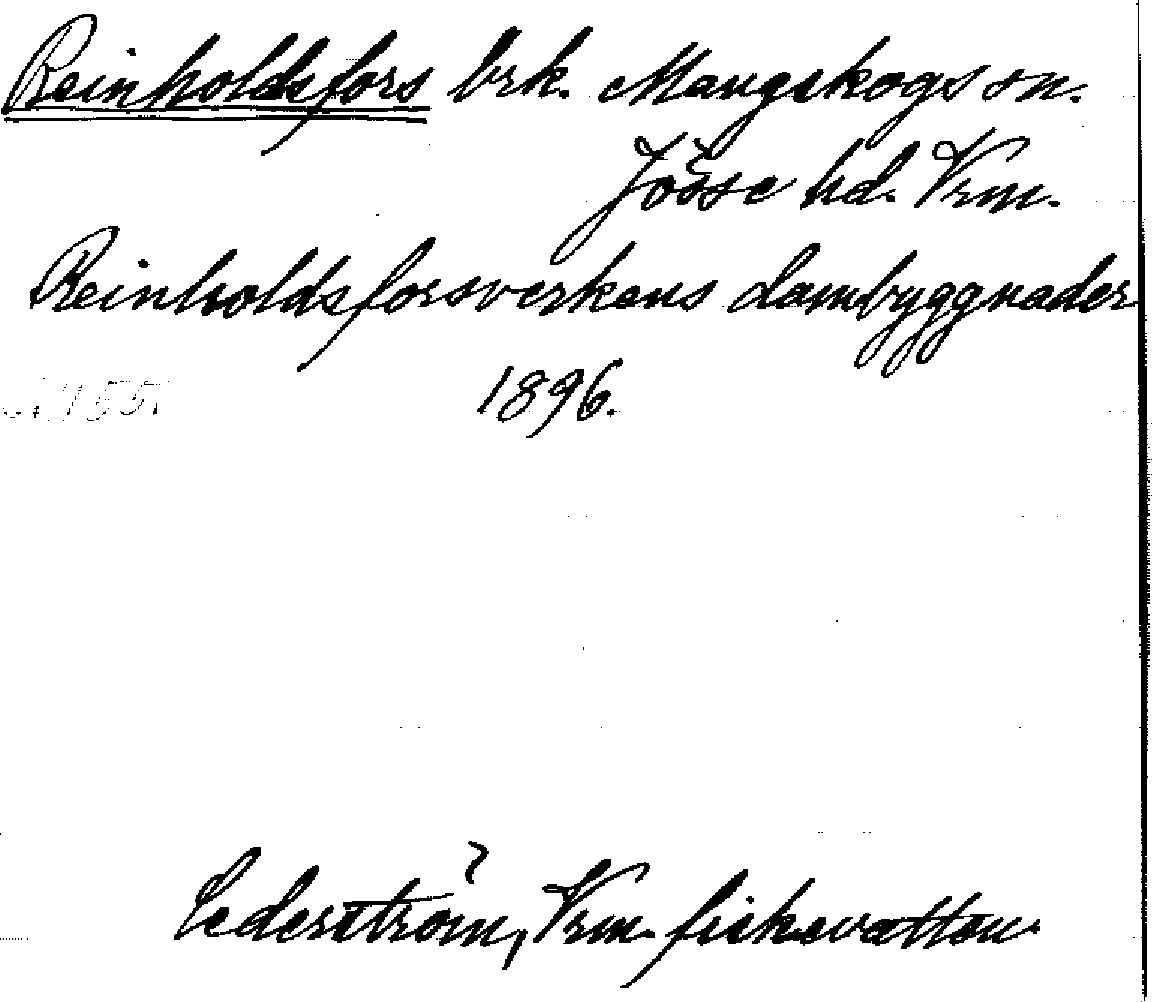 Reinholdsfors brk. Mangskogs sn.
Jösse hd. Vrm.
Reinholdsforsverkens dambyggnader
1896.
Cederström, Vrm. fiskevatten